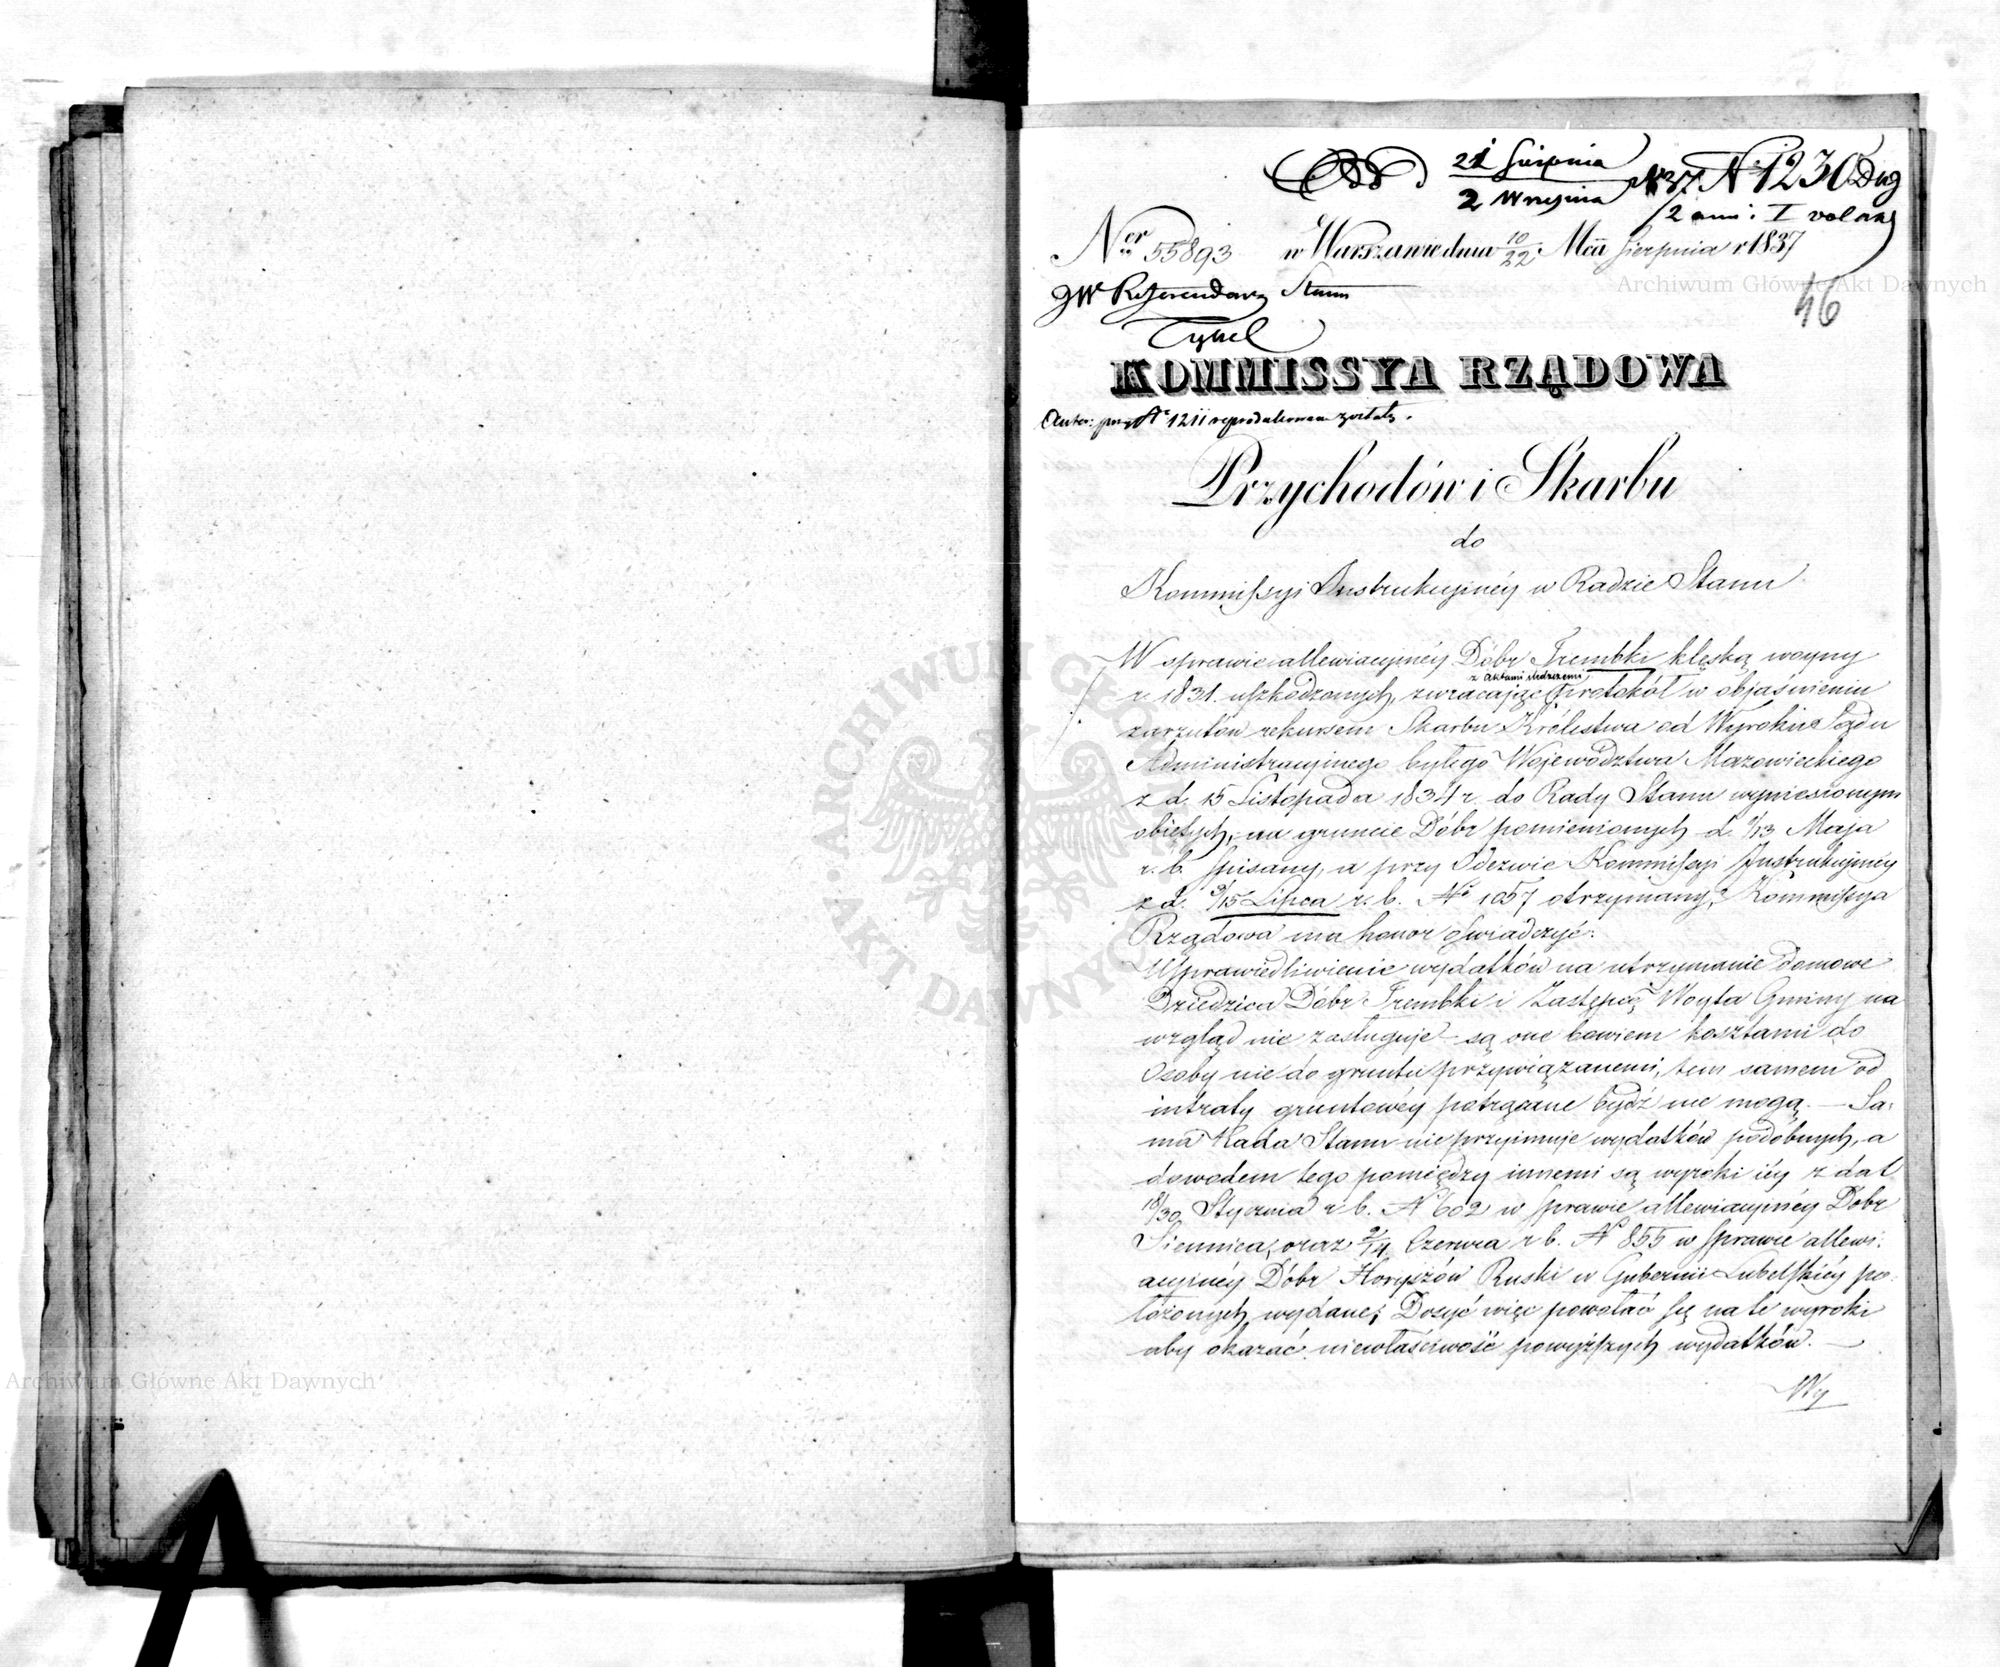 21 Sierpnia
2 Września 837 N 1230 Dug
2 ann: I volum
Ner 55893 w Warszawie dnia 10/22 Mca Sierpnia r 1837
Archiwum Główne Akt Dawnych
46
JW Referendarz Stanu
Tykel
KOMMISSYA RZĄDOWA
przy N 1211 reprodukowane zostały.
Przychodów i Skarbu
do
Kommissyi Instrukcyjnéy w Radzie Stanu
W sprawie allewiacyjnéy Dóbr Trembki klęską woyny
z Aktami śledczemi
r. 1831. uszkodzonych, zwracając protokół w objaśnieniu
zarzutów rekursem Skarbu Królestwa od Wyroku Sądu
Administracyjnego byłego Województwa Mazowieckiego
z d. 15 Listopada 1834 r. do Rady Stanu wyniesionym
objętych, na gruncie Dóbr pomienionych d. 1/13 Maja
r. b. spisany, a przy Odezwie Kommissyi Instrukcyjnéy
z d. 3/15 Lipca r. b. No 1057 otrzymany, Kommissya
Rządowa ma honor oświadczyć:
Usprawiedliwienie wydatków na utrzymanie domowe
Dziedzica Dóbr Trembki i Zastępcę Woyta Gminy na
wzgląd nie zasługuje – są one bowiem kosztami do
Osoby nie do gruntu przywiązanemi, tem samem od
intraty gruntowéy potrącane bydź nie mogą. – Sa-
ma Rada Stanu nie przyimuje wydatków podobnych, a
dowodem tego pomiędzy innemi są wyroki iéy z dat
18/30 Stycznia r b. No 602 w sprawie allewiacyjnéy Dobr
Siennica, oraz 2/14 Czerwca r b. No 855 w sprawie allewi-
acyjnéy Dóbr Horyszów Ruski w Gubernii Lubelskiéy po-
łożonych wydane; Dosyć więc powołać się na te wyroki
aby okazać niewłaściwość powyższych wydatków. –
Wy
ARCHIWUM GŁÓWNE AKT DAWNYCH
Archiwum Główne Akt Dawnych